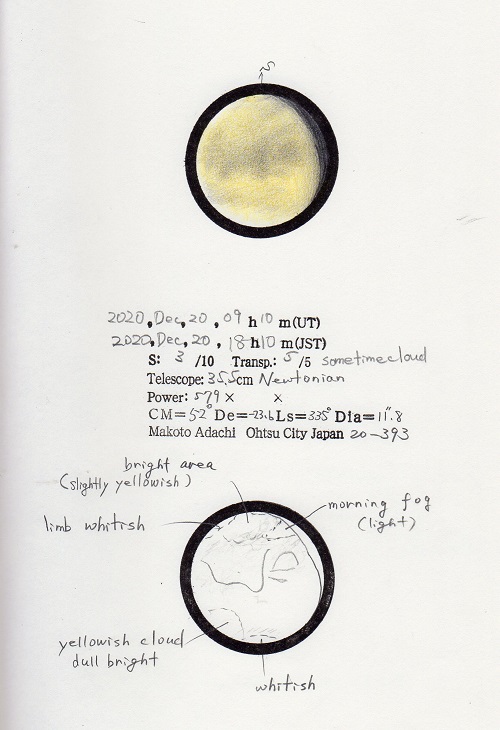 S
2020, Dec, 20, 09 h 10 m(UT)
2020, Dec, 20, 18 h 10 m(JST)
S: 3 /10 Transp.: 5 /5 sometime cloud
Telescope: 35.5cm Newtonian
Power: 579 × ×
CM=52° De=-23.6 Ls=335° Dia=11".8
Makoto Adachi Ohtsu City Japan 20-393
bright area
(slightly yellowish)
morning fog
(light)
limb whitish
yellowish cloud
dull bright
whitish